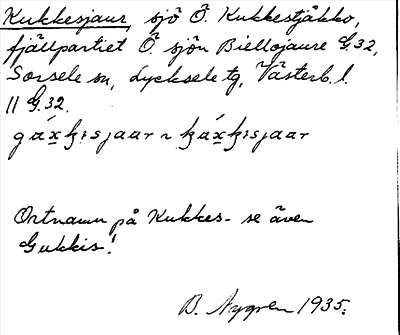 Kukkesjaur, sjö Ö. Kukkestjåkko,
fjällpartiet Ö sjön Biellojaure G.32,
Sorsele sn, Lycksele tg, Västerb. l.
11 G.32.
Ortnamn på Kukkes- se även
Gukkis!
B. Nygren 1935.